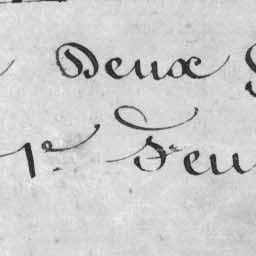 Deux
1e Feu